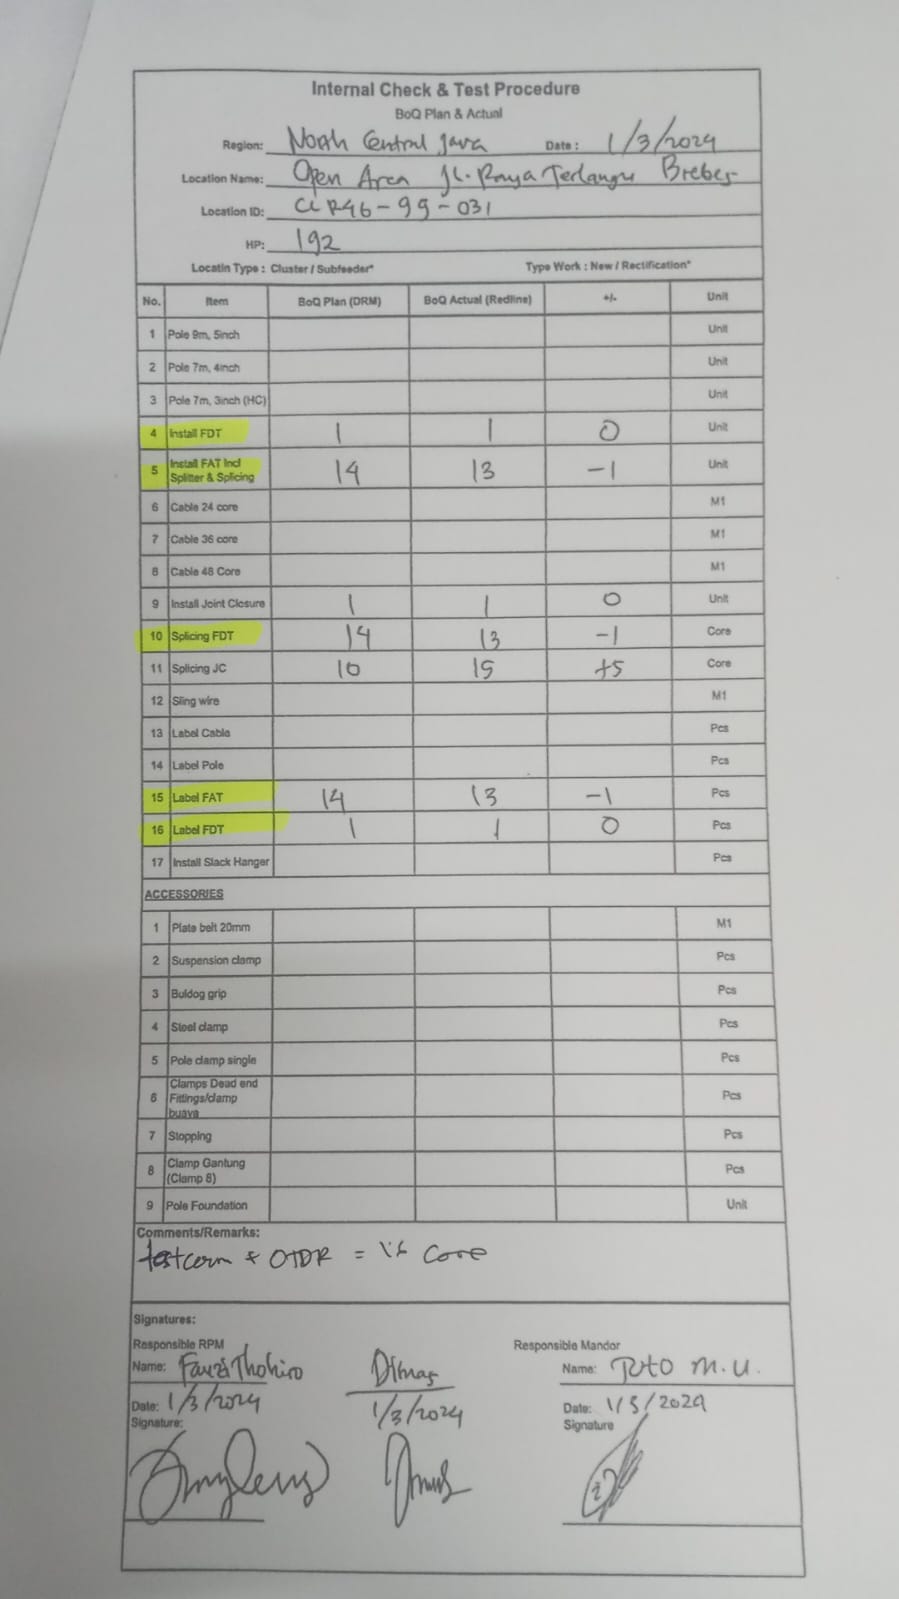 Internal Check & Test Procedure
BoQ Plan & Actual
Region: North Central Java Date: 1/3/2024
Location Name: Open Area Jl. Raya Terlangu Brebes
Location ID: CLR46-99-031
HP: 192
Locatin Type : Cluster / Subfeeder* Type Work : New / Rectification*
No. Item BoQ Plan (DRM) BoQ Actual (Redline) +/- Unit
1 Pole 9m, 5inch Unit
2 Pole 7m, 4inch Unit
3 Pole 7m, 3inch (HC) Unit
4 Install FDT 1 1 0 Unit
5 Install FAT Incl Splitter & Splicing 14 13 -1 Unit
6 Cable 24 core M1
7 Cable 36 core M1
8 Cable 48 Core M1
9 Install Joint Closure 1 1 0 Unit
10 Splicing FDT 14 13 -1 Core
11 Splicing JC 10 15 +5 Core
12 Sling wire M1
13 Label Cable Pcs
14 Label Pole Pcs
15 Label FAT 14 13 -1 Pcs
16 Label FDT 1 1 0 Pcs
17 Install Slack Hanger Pcs
ACCESSORIES
1 Plate belt 20mm M1
2 Suspension clamp Pcs
3 Buldog grip Pcs
4 Steel clamp Pcs
5 Pole clamp single Pcs
6 Clamps Dead end Fittings/clamp buaya Pcs
7 Stopping Pcs
8 Clamp Gantung (Clamp 8) Pcs
9 Pole Foundation Unit
Comments/Remarks:
OTDR = Core
Signatures:
Responsible RPM Responsible Mandor
Name: Fauzi Thohiro Dimas Name: Toto M.U.
Date: 1/3/2024 1/3/2024 Date: 1/3/2024
Signature: Signature